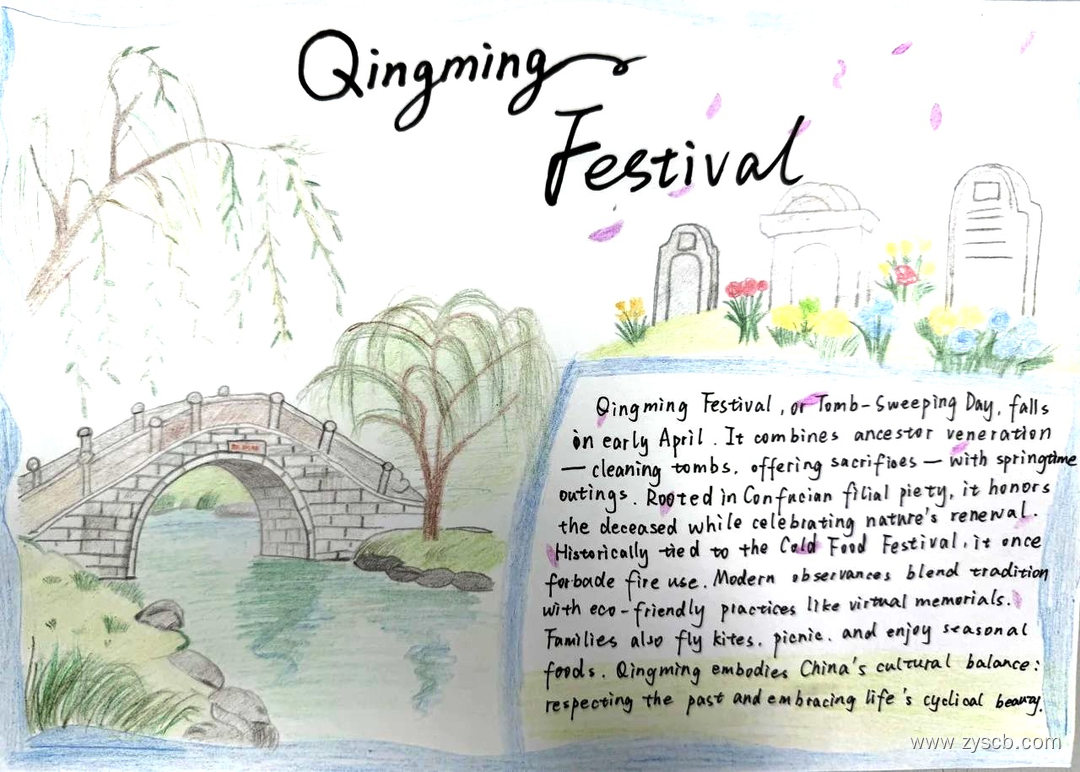 Qingming
Festival
Qingming Festival, or Tomb-Sweeping Day, falls
in early April. It combines ancestor veneration
— cleaning tombs, offering sacrifices — with springtime
outings. Rooted in Confucian filial piety, it honors
the deceased while celebrating nature's renewal.
Historically tied to the Cold Food Festival, it once
forbade fire use. Modern observances blend tradition
with eco-friendly practices like virtual memorials.
Families also fly kites, picnic, and enjoy seasonal
foods. Qingming embodies China's cultural balance:
respecting the past and embracing life's cyclical beauty.
www.zyscb.com